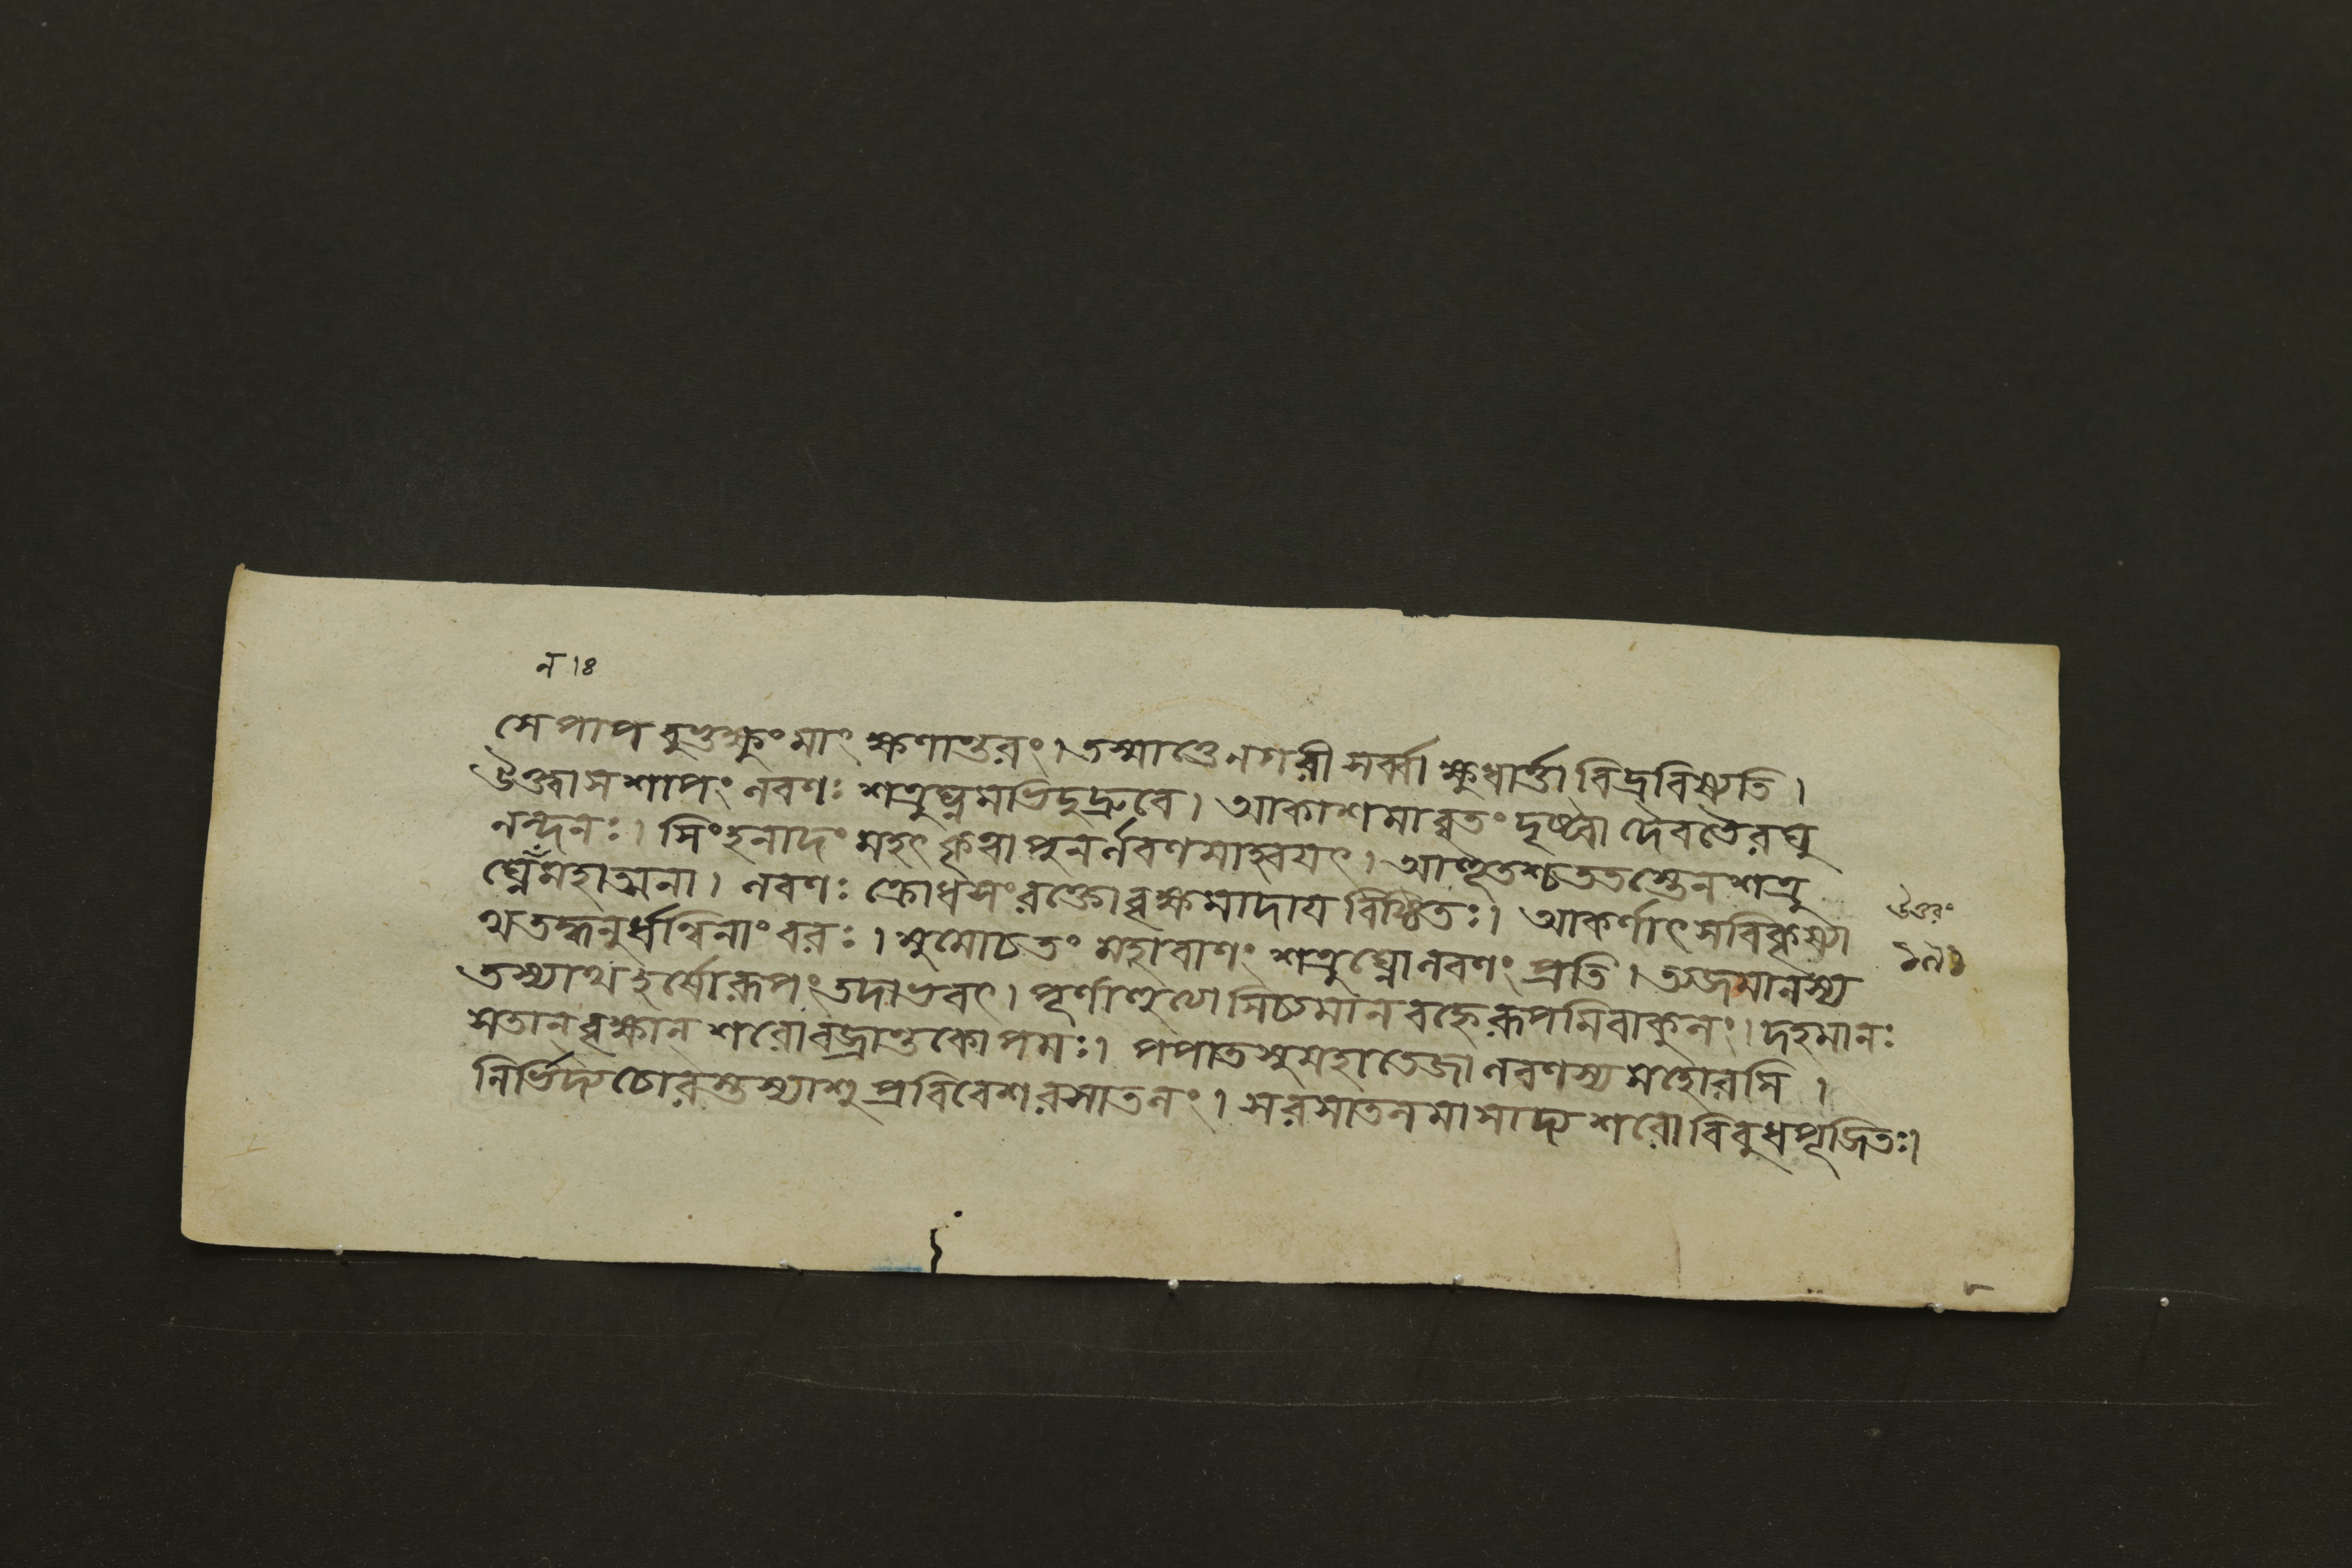 ন।ঃ
সে পাপ বুভুক্ষুং মাং ক্ষণান্তরং। তস্মাত্তে নগরী সর্ব্বা ক্ষুধার্ত্তা বিদ্রবিষ্যতি।
ঔক্ত্বা স শাপং নবণঃ শত্রুঘ্নমভিদুদ্রুবে। আকাশমাবৃতং দৃষ্ট্বা দৈবতৈ রঘু
নন্দনঃ। সিংহনাদং মহৎ কৃত্বা পুনর্নবণমাহ্বয়ৎ। আহূতশ্চ ততস্তেন শত্রু
ঘ্নেন মহাত্মনা। নবণঃ ক্রোধসংরক্তো বৃক্ষমাদায় বিষ্ঠিতঃ। আকর্ণাৎ স বিকৃষ্যা
থ তদ্ধনুর্ধন্বিনাং বরঃ। মুমোচ তং মহাবাণং শত্রুঘ্নো নবণং প্রতি। তস্য
তস্যাথ রূপং তদাভবৎ। সিচ্যমান বহ্নে রূপমিবাকুনং। দহমানঃ
স তান্ বৃক্ষান্ শরো বজ্রান্তকোপমঃ। পপাত সুমহাতেজা নবণস্য মহোরসি।
নির্ভিদ্য চোরস্তস্যাশু প্রবিবেশ রসাতনং। স রসাতনমাসাদ্য শরো বিবুধপূজিতঃ।
উত্তরং